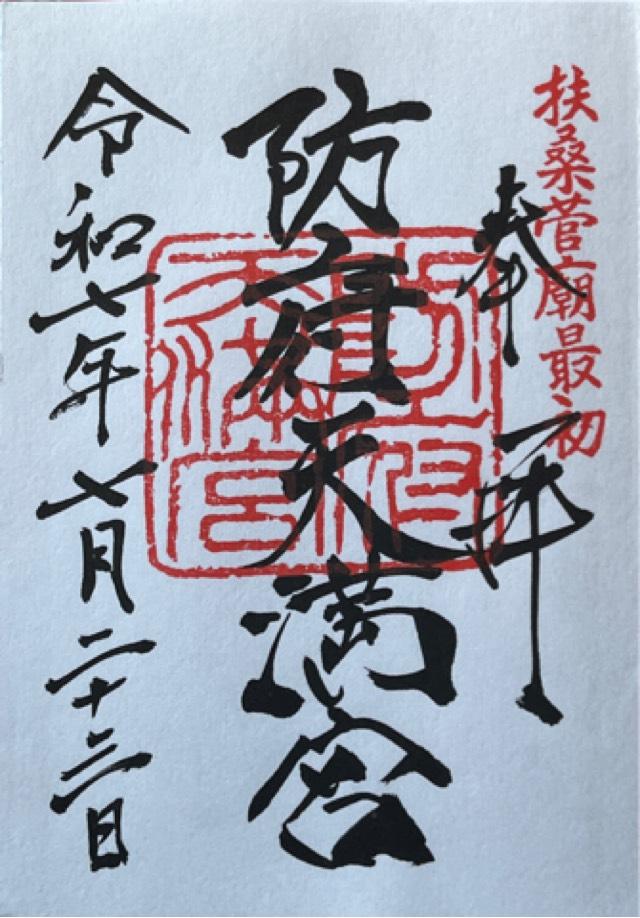 扶桑菅廟最初
奉拝
防府天満宮
令和七年七月二十三日